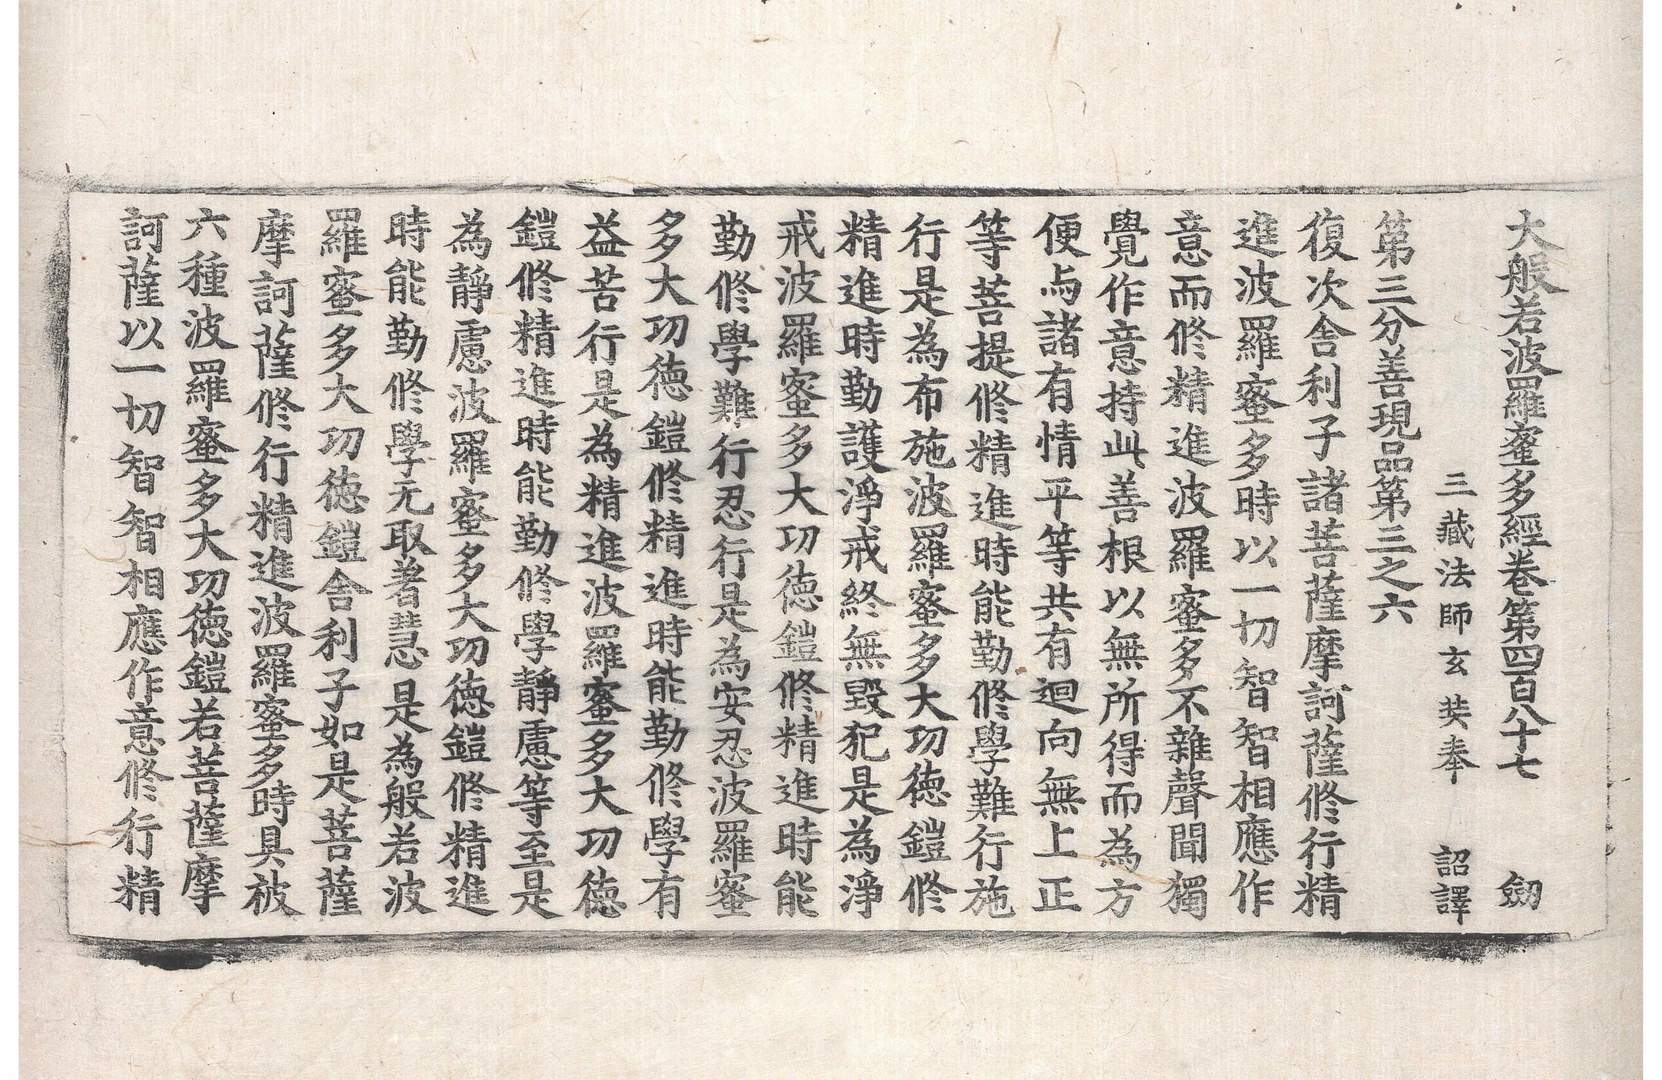 大般若波羅蜜多經卷第四百八十七　劒
三藏法師玄奘奉　詔譯
第三分善現品第三之六
復次舍利子諸菩薩摩訶薩修行精
進波羅蜜多時以一切智智相應作
意而修精進波羅蜜多不雜聲聞獨
覺作意持此善根以無所得而為方
便与諸有情平等共有迴向無上正
等菩提修精進時能勤修學難行施
行是為布施波羅蜜多大功德鎧修
精進時勤護淨戒終無毀犯是為淨
戒波羅蜜多大功德鎧修精進時能
勤修學難行忍行是為安忍波羅蜜
多大功德鎧修精進時能勤修學有
益苦行是為精進波羅蜜多大功德
鎧修精進時能勤修學靜慮等至是
為靜慮波羅蜜多大功德鎧修精進
時能勤修學无取著慧是為般若波
羅蜜多大功德鎧舍利子如是菩薩
摩訶薩修行精進波羅蜜多時具被
六種波羅蜜多大功德鎧若菩薩摩
訶薩以一切智智相應作意修行精